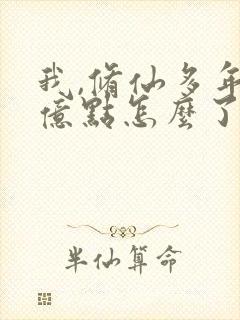 我,脩仙多年
億點怎麼了
半仙算命